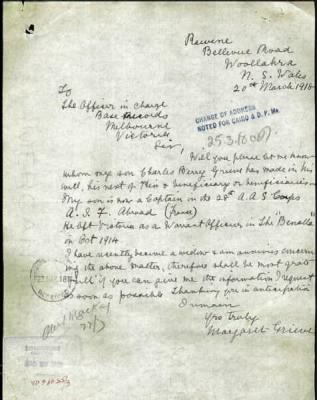 Bellevue Road
Woollahra
N. S. Wales
20th March 1918
To
The Officer in Charge
Base Records
Melbourne
Victoria
CHANGE OF ADDRESS
NOTED FOR CAIRO & D.P. Ms.
Sir,
Will you please let me know
whom my son Charles Percy Grieve has made in his
will, his next of Kin & beneficiary or beneficiaries
My son is now a Captain in the A.A.S Corps
A. I. F. Abroad (France)
He left Victoria as a Warrant Officer in the "Benalla"
in Oct 1914
I have recently become a widow & am anxious concern
ing the above matter, therefore shall be most grate
full if you can give me the information I request
as soon as possible Thanking you in anticipation
I remain
Yrs truly
Margaret Grieve